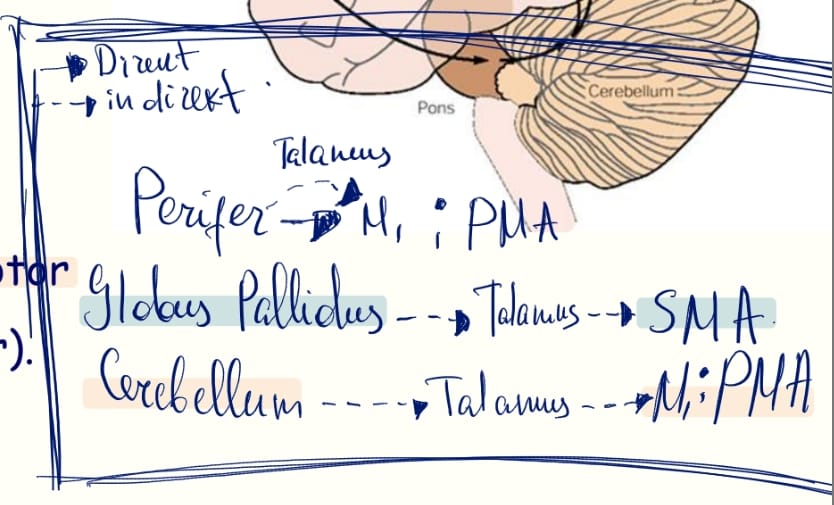 Direut
indirekt
Cerebellum
Pons
Talamus
Perifer M₁ ; PMA
otor
Globus Pallidus Talamus SMA
).
Cerebellum Talamus M₁ ; PMA